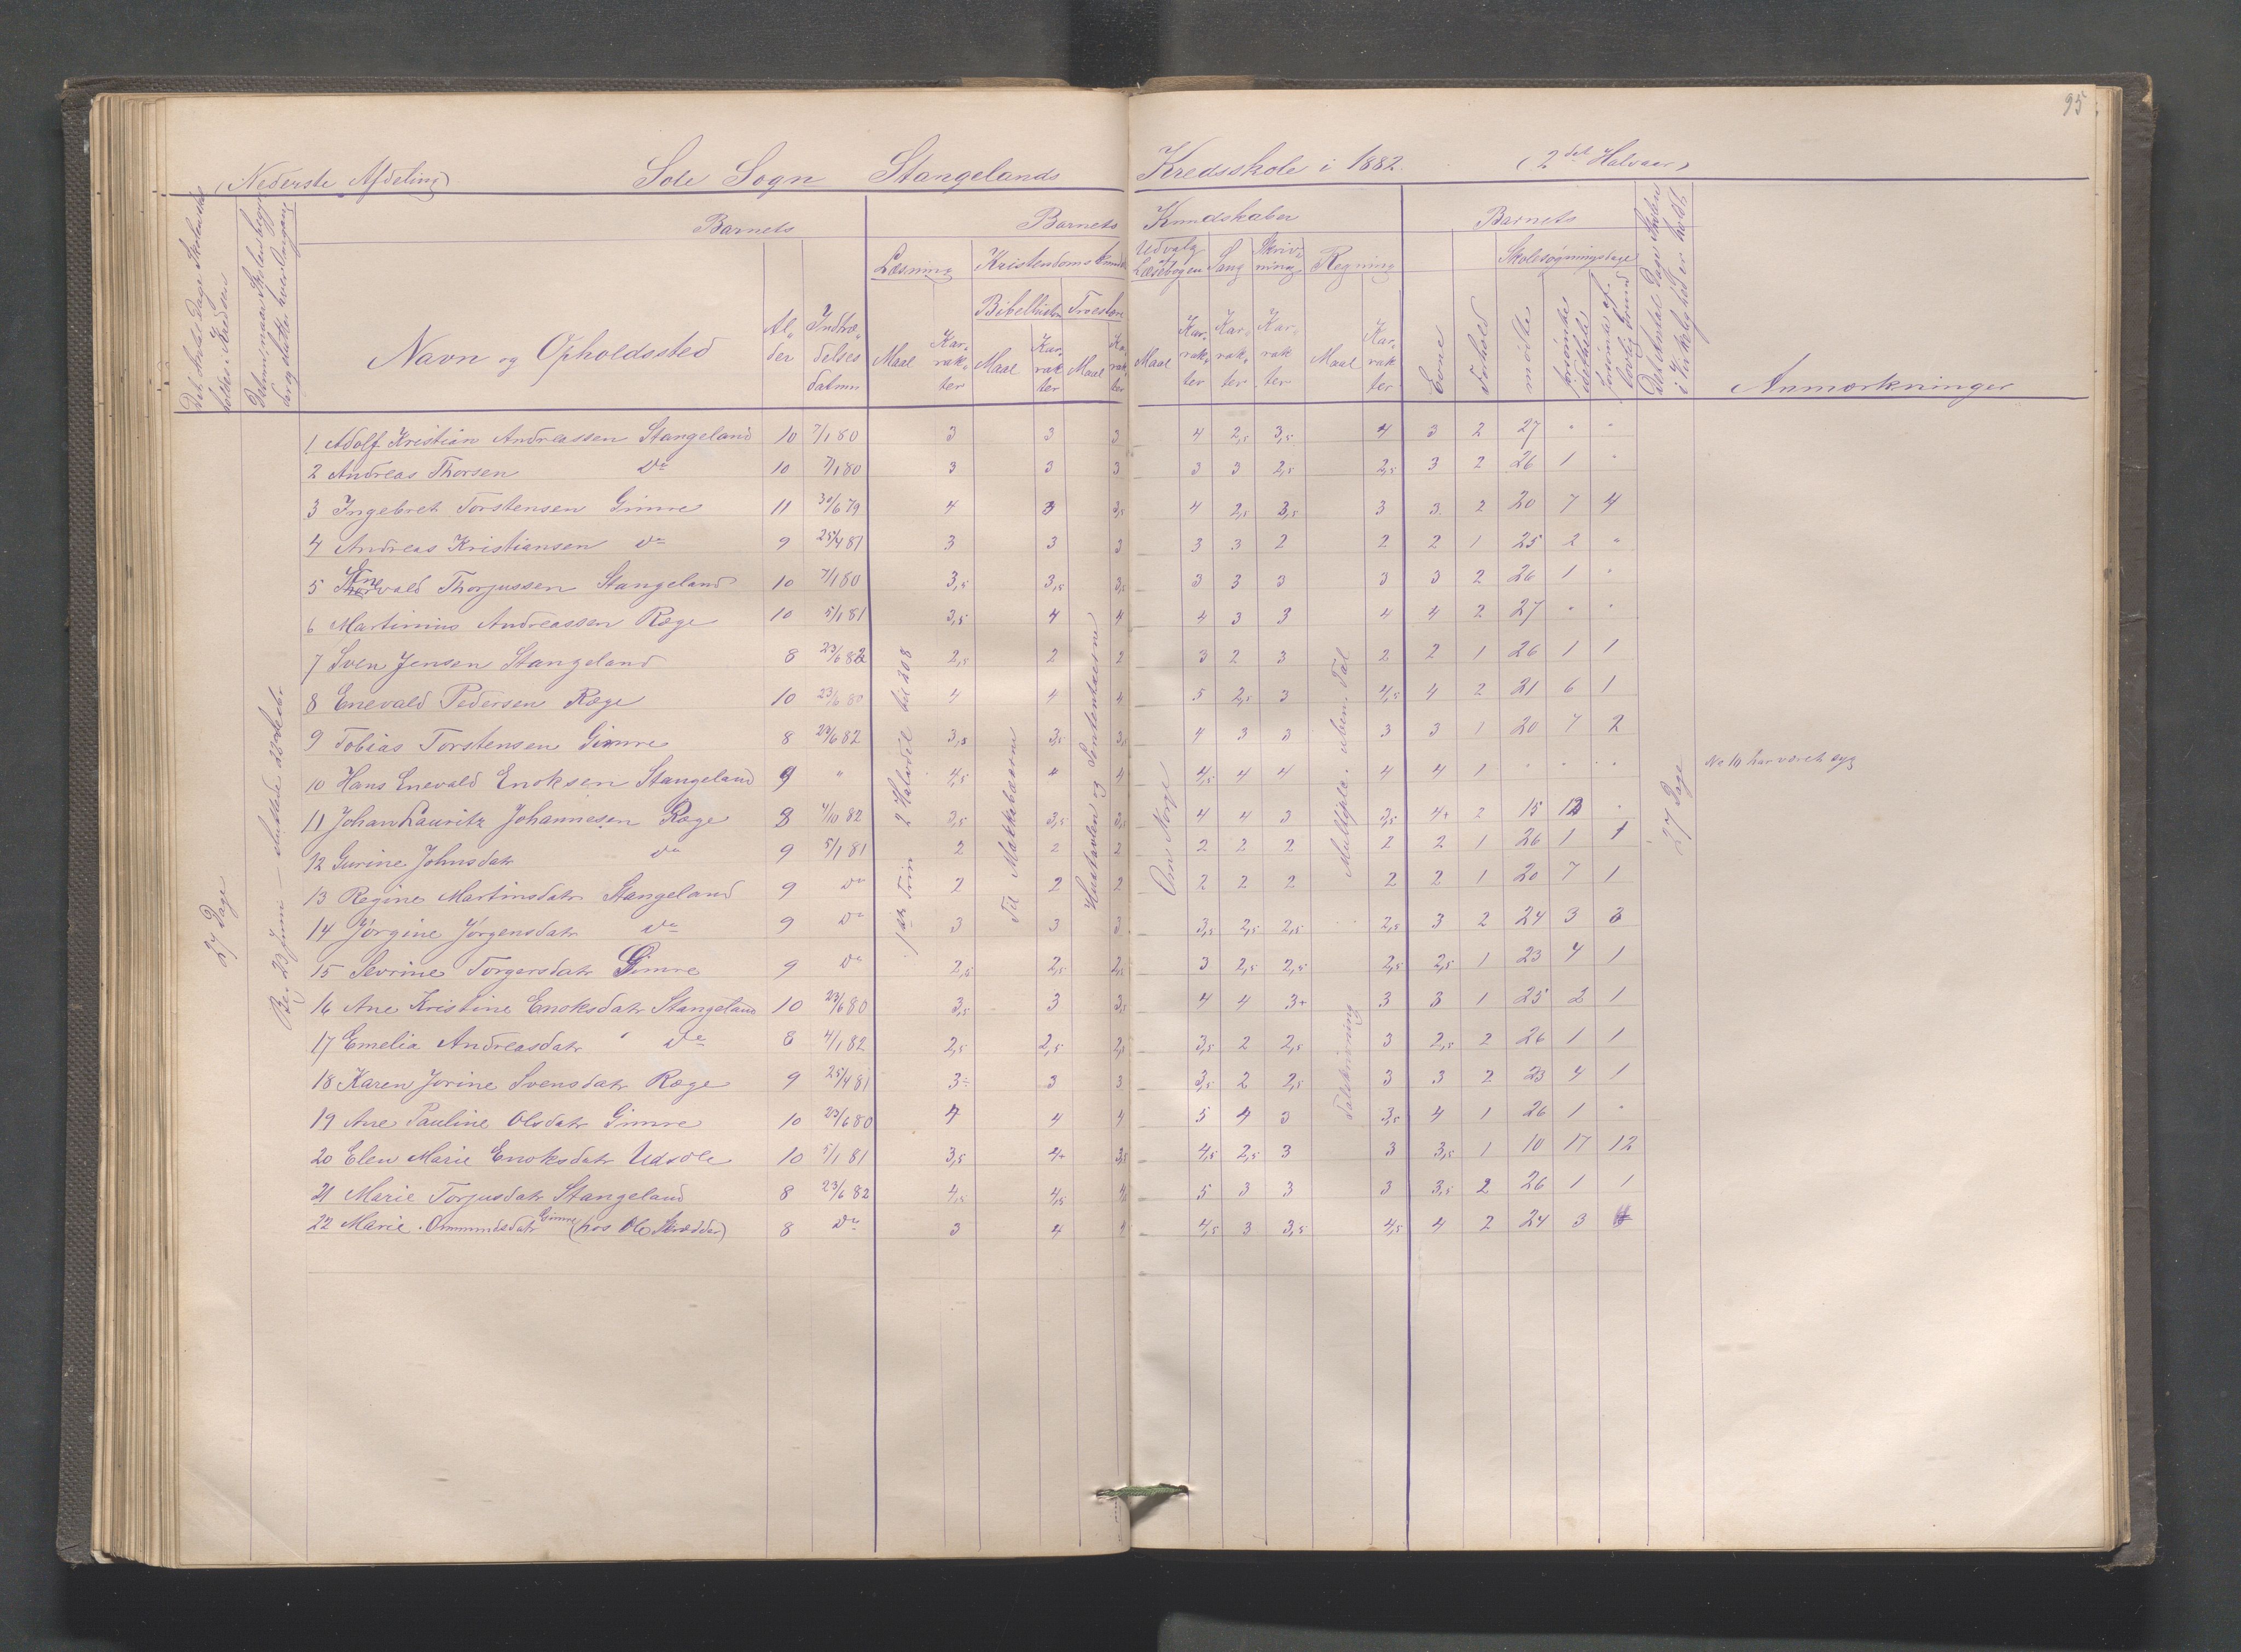 95
(Nederste Afdeling) Sole Sogn Stangelands Kredsskole i 1882. (2det Halvaar)
Det Antal Dage Skolen skal holdes i Kredsen
Barnets Barnets Kundskaber Barnets
Læsning Kristendomskundsk Udvalg Læsebogen Sang Skrivning Regning Skolesøgningsdage
Bibelhistorie Troeslære
Navn og Opholdssted Alder Indtrædelsesdatum Maal Karakter Maal Karakter Maal Karakter Maal Karakter Karakter Karakter Maal Karakter Evne Forhold mødte forsømte i det hele forsømte af lovlig Grund Det Antal Dage Skolen i Virkelighed er holdt Anmærkninger
1 Adolf Kristian Andreassen Stangeland 10 7/1 80 3 3 3 4 2,5 3,5 4 3 2 27 " "
2 Andreas Thorsen Do 10 7/1 80 3 3 3 3 3 2,5 2,5 3 2 26 1 "
3 Ingebret Torstensen Gimre 11 30/6 79 4 3 3,5 4 2,5 3,5 3 3 2 20 7 4
4 Andreas Kristiansen Do 9 25/4 81 3 3 3 3 3 2 2 2 1 25 2 "
5 Enevald Thorjussen Stangeland 10 7/1 80 3,5 3,5 3,5 3 3 3 3 3 2 26 1 "
6 Martinius Andreassen Ræge 10 5/1 81 3,5 4 4 4 3 3 4 4 2 27 " "
7 Sven Jensen Stangeland 8 23/6 82 2,5 2 2 3 2 3 2 2 1 26 1 1
8 Enevald Pedersen Ræge 10 23/6 80 4 4 4 5 2,5 3 4,5 4 2 21 6 1
9 Tobias Torstensen Gimre 8 23/6 82 3,5 3,5 3,5 4 3 3 3 3 1 20 7 2
10 Hans Enevald Enoksen Stangeland 9 " 4,5 4 4 4,5 4 4 4 4 1 " " " No 10 har været syg
11 Johan Lauritz Johannesen Ræge 8 4/10 82 3,5 3,5 3,5 4 4 3 3,5 4+ 2 15 12 "
12 Gurine Johnsdatr Do 9 5/1 81 2 2 2 2 2 2 2 2 1 26 1 1
13 Regine Martinsdatr Stangeland 9 Do 2 2 2 2 2 2 2 2 1 20 7 1
14 Jörgine Jörgensdatr Do 9 Do 3 3 3 3,5 2,5 2,5 2,5 3 2 24 3 3
15 Sevrine Torgersdatr Gimre 9 Do 2,5 2,5 2,5 3 2,5 2,5 2,5 2,5 1 23 4 1
16 Ane Kristine Enoksdatr Stangeland 10 23/6 80 3,5 3 3,5 4 4 3+ 3 3 1 25 2 1
17 Emelia Andreasdatr Do 8 4/1 82 2,5 2,5 2,5 3,5 2 2,5 3 2,5 2 26 1 1
18 Karen Jorine Svensdatr Ræge 9 25/4 81 3÷ 3 3 3,5 2 2,5 3 3 2 23 4 1
19 Ane Pauline Olsdatr Gimre 10 23/6 80 4 4 4 5 4 3 3,5 4 1 26 1 "
20 Elen Marie Enoksdatr Udsole 10 5/1 81 3,5 4+ 3,5 4,5 2,5 3 3 3,5 1 10 17 12
21 Marie Torjusdatr Stangeland 8 23/6 82 4,5 4,5 4 5 3 3 3 3,5 2 26 1 1
22 Marie Ommundsdatr Gimre (hos Ole Skrædder) 8 Do 3 4 4 4,5 3 3,5 4,5 4 2 24 3
27 Dage
Beg. 23 Juni – sluttede
1ste Trin 2 Halvdel til 208
Til Makkabæerne
Hustavlen og Sententserne
Om Norge
Multipla. ubem. Tal
Talskrivning
27 Dage